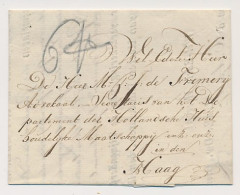 64
Wel Edele Heer
De Heer M. C. J. de Fremery
Advokaat Secretaris van het De
partement der Hollandsche Huis
houdelijke Maatschappij enz. enz.
in den
Haag